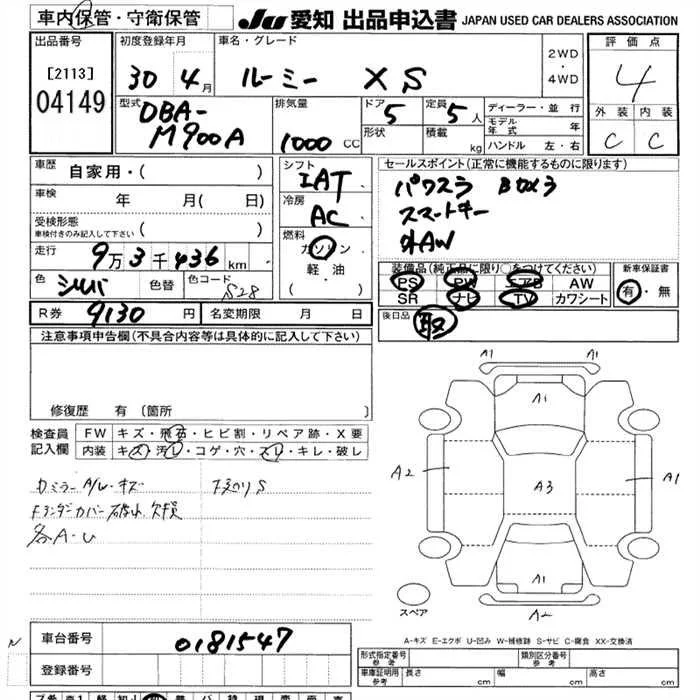 車内保管・守衛保管
JU 愛知 出品申込書 JAPAN USED CAR DEALERS ASSOCIATION
出品番号
[2113]
04149
初度登録年月
30年 4月
車名・グレード
ルーミー XS
2WD
・
4WD
評価点
4
外装 内装
C C
型式
DBA-
M900A
排気量
1000 CC
ドア
5
定員
5人
形状
積載
kg
ディーラー・並行
モデル年式 年
ハンドル 左・右
車歴
自家用・( )
車検
年 月( 日)
受検形態
車検付きのみ記入して下さい ( )
走行
9万3千436km
色
シルバ
色替
色コード
S28
シフト
IAT
冷房
AC
燃料
ガソリン
軽油
( )
セールスポイント(正常に機能するものに限ります)
パワスラ Bカメラ
スマートキー
外AW
装備品(純正品に限り○をつけてください)
PS PW エアB AW
SR ナビ TV カワシート
新車保証書
有・無
R券 9130円
名変期限 月 日
後日品
取
注意事項申告欄(不具合内容等は具体的に記入して下さい)
修復歴 有 [箇所 ]
検査員
記入欄
FW キズ・飛石・ヒビ割・リペア跡・X要
内装 キズ・汚レ・コゲ・穴・スレ・キレ・破レ
カミラー A/L・キズ
下廻りS
各A-U
A1 A1
A1
A2
A3
A1
A1
A2
スペア
A-キズ E-エクボ U-凹み W-補修跡 S-サビ C-腐食 XX-交換済
車台番号
0181547
登録番号
N
形式指定番号
参考
類別区分番号
参考
車庫証明用
参考
長さ cm
幅 cm
高さ cm